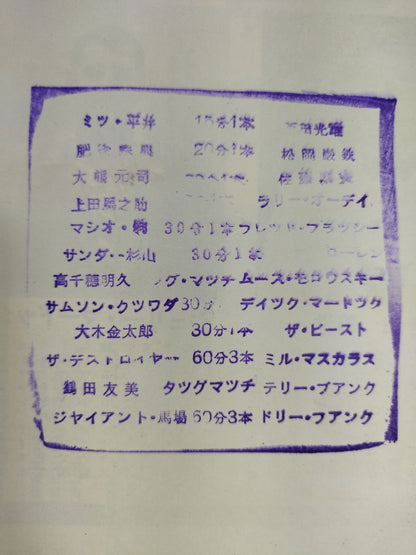 ミツ・平井 15分1本 光雄
肥後 20分1本 松岡巌鉄
大熊元司 佐藤
上田馬之助 ラリー・オーデイ
マシオ・駒 30分1本 フレツド・ブラツシー
サンダー杉山 30分1本 ローレン
高千穂明久 グ・マツチ ムース・モロウスキー
サムソン・クツワダ 30分 デイツク・マードツク
大木金太郎 30分1本 ザ・ビースト
ザ・デストロイヤー 60分3本 ミル・マスカラス
鶴田友美 タツグマツチ テリー・フアンク
ジヤイアント・馬場 60分3本 ドリー・フアンク